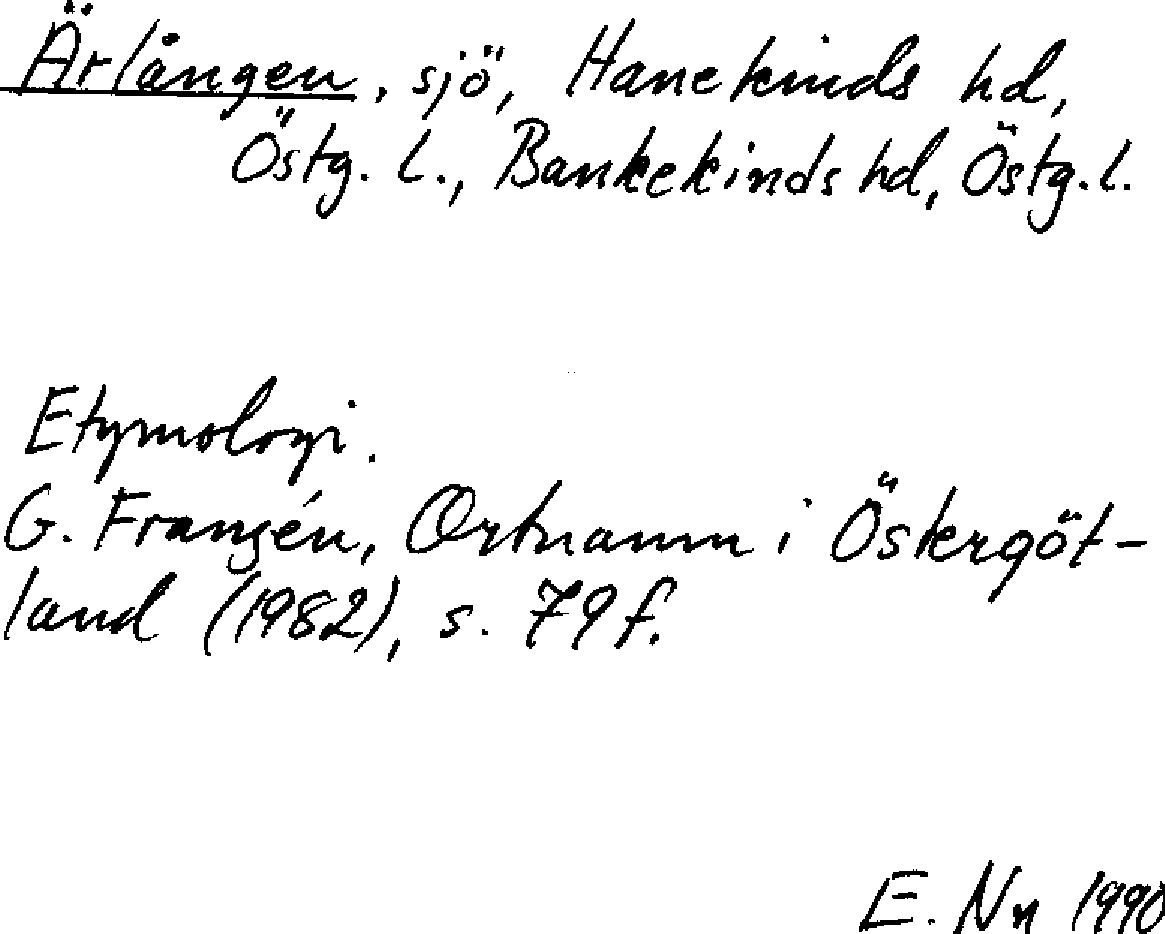 Ärlången, sjö, Hanekinds hd,
Östg. l., Bankekinds hd, Östg. l.
Etymologi.
G. Franzén, Ortnamn i Östergöt-
land (1982), s. 79 f.
E. Nn 1990